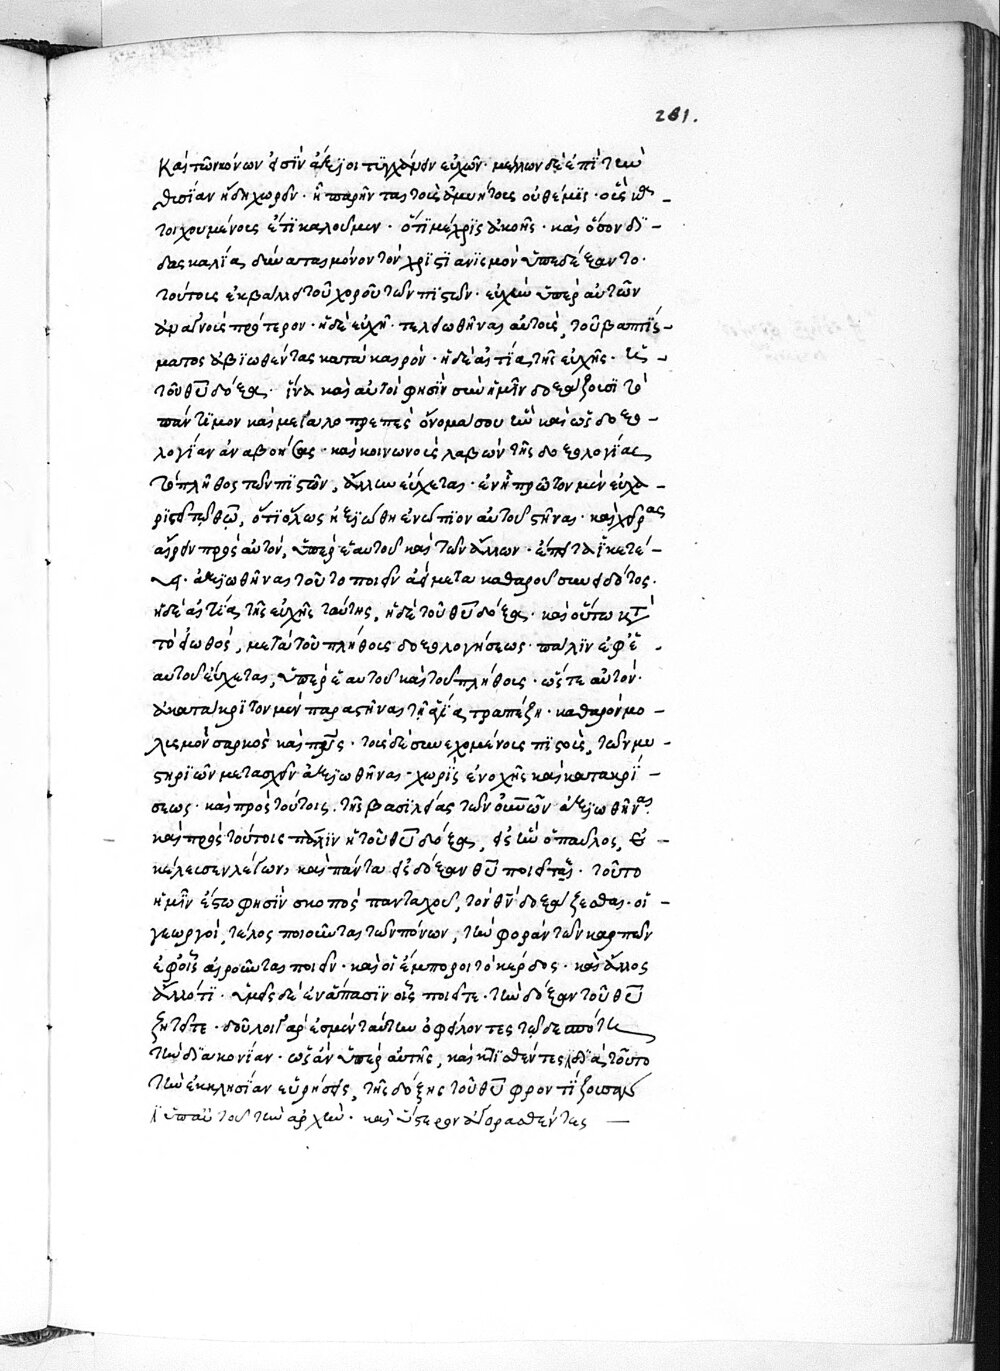 281.
καὶ τῶν κοινῶν εἰσὶν ἄξιοι τυγχάνειν εὐχῶν· μέλλων δὲ ἐπὶ τὴν
θυσίαν ἤδη χωρεῖν· ᾗ παρεῖναι τοὺς ἀμυήτους οὐ θέμις· οὓς κα
τηχουμένους ἔτι καλοῦμεν· ὅτι μέχρις ἀκοῆς· καὶ ὅσον δι-
δασκαλίας δύνανται μόνον τὸν χριστιανισμὸν ὑπεδέξαντο·
τούτους ἐκβάλλει τοῦ χοροῦ τῶν πιστῶν· εὐχὴν ὑπὲρ αὐτῶν
ἀναγνοὺς πρότερον· ἡ δὲ εὐχὴ· τελειωθῆναι αὐτοὺς τοῦ βαπτίσ-
ματος ἀξιωθέντας κατὰ καιρόν· ἡ δὲ αἰτία τῆς εὐχῆς·
τοῦ θυ δόξα· ἵνα καὶ αὐτοὶ φησὶν σὺν ἡμῖν δοξάζωσι τὸ
πάντιμον καὶ μεγαλοπρεπὲς ὄνομά σου καὶ δοξο-
λογίαν ἀναβοήσας· καὶ κοινωνοὺς λαβὼν τῆς δοξολογίας
τὸ πλῆθος τῶν πιστῶν, ἄλλην εὔχεται· ἐν ᾗ πρῶτον μὲν εὐχα-
ριστεῖ τῷ θῶ, ὅτι ὅλως ἠξιώθη ἐνώπιον αὐτοῦ στῆναι· καὶ χεῖρας
αἴρειν πρὸς αὐτὸν, ὑπὲρ ἑαυτοῦ καὶ τῶν ἄλλων· ἔπειτα ἱκετεύ-
ει· ἀξιωθῆναι τοῦτο ποιεῖν ἀεὶ μετὰ καθαροῦ συνειδότος·
ἡ δὲ αἰτία τῆς εὐχῆς ταύτης, ἡ δὲ τοῦ θυ δόξα· καὶ οὕτω κατὰ
τὸ εἰωθὸς, μετὰ τοῦ πλήθους δοξολογήσεως· πάλιν ἐφ' ἑ-
αυτοῦ εὔχεται, ὑπὲρ ἑαυτοῦ καὶ τοῦ πλήθους· ὥστε αὐτὸν·
ἀκατακρίτον μὲν παραστῆναι τῇ ἁγίᾳ τραπέζῃ· καθαρὸν μο-
λυσμοῦ σαρκὸς καὶ πνς· τοὺς δὲ συνευχομένους πιστοὺς, τῶν μυ-
στηρίων μετασχεῖν ἀξιωθῆναι· χωρὶς ἐνοχῆς καὶ κατακρί-
σεως· καὶ πρὸς τούτοις τῆς βασιλείας τῶν οὐνῶν ἀξιωθῆναι
καὶ πρὸς τούτοις πάλιν ἡ τοῦ θυ δόξα, ὁ παῦλος, ἐ-
κέλευσεν λέγων, καὶ πάντα εἰς δόξαν θυ ποιεῖται· τοῦτο
ἡμῖν ἔστω φησὶν σκοπὸς πανταχοῦ, τὸν θν δοξάζεσθαι· οἱ
γεωργοὶ, τέλος ποιοῦνται τῶν πόνων, τὴν φορὰν τῶν καρπῶν
ἐφ' οἷς αἱροῦνται ποιεῖν· καὶ οἱ ἔμποροι τὸ κέρδος· καὶ ἄλλος
ἄλλό τι· ὑμεῖς δὲ ἐν ἅπασιν οἷς ποιεῖτε· τὴν δόξαν τοῦ θυ
ζητεῖτε· δοῦλοι γάρ ἐσμεν ταύτην ὀφείλοντες τῷ δεσπότῃ
τὴν διακονίαν· ὑπὲρ αὐτῆς, καὶ κτισθέντες διὰ τοῦτο
τὴν ἐκκλησίαν εὑρήσεις, τῆς δόξης τοῦ θυ φροντίζουσαν
ὑπ' αὐτοῦ τὴν ἀρχὴν· καὶ ὕστερον ἀγορασθέντες